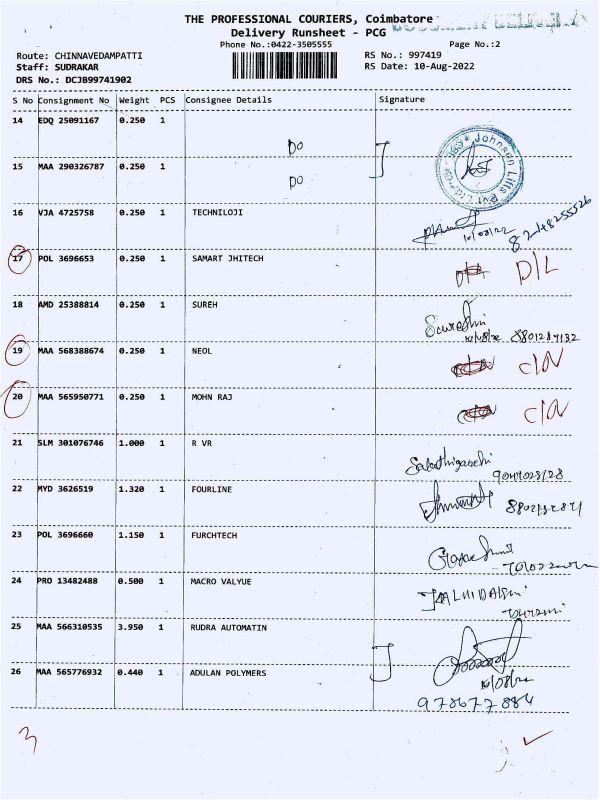 THE PROFESSIONAL COURIERS, Coimbatore
Delivery Runsheet - PCG
Phone No.:0422-3505555 Page No.:2
Route: CHINNAVEDAMPATTI RS No.: 997419
Staff: SUDRAKAR RS Date: 10-Aug-2022
DRS No.: DCJB99741902
S No Consignment No Weight PCS Consignee Details Signature
14 EDQ 25091167 0.250 1
DO
Johnson Lifts Pvt Ltd
15 MAA 290326787 0.250 1
DO
16 VJA 4725758 0.250 1 TECHNILOJI
10/08/22 8248255526
17 POL 3696653 0.250 1 SAMART JHITECH D/L
18 AMD 25388814 0.250 1 SUREH
10/08/22 8801284132
19 MAA 568388674 0.250 1 NEOL C/N
20 MAA 565950771 0.250 1 MOHN RAJ C/N
21 SLM 301076746 1.000 1 R VR
22 MYD 3626519 1.320 1 FOURLINE
23 POL 3696660 1.150 1 FURCHTECH
24 PRO 13482488 0.500 1 MACRO VALYUE
25 MAA 566310535 3.950 1 RUDRA AUTOMATIN
26 MAA 565776932 0.440 1 ADULAN POLYMERS
10/08/22
978677884
3